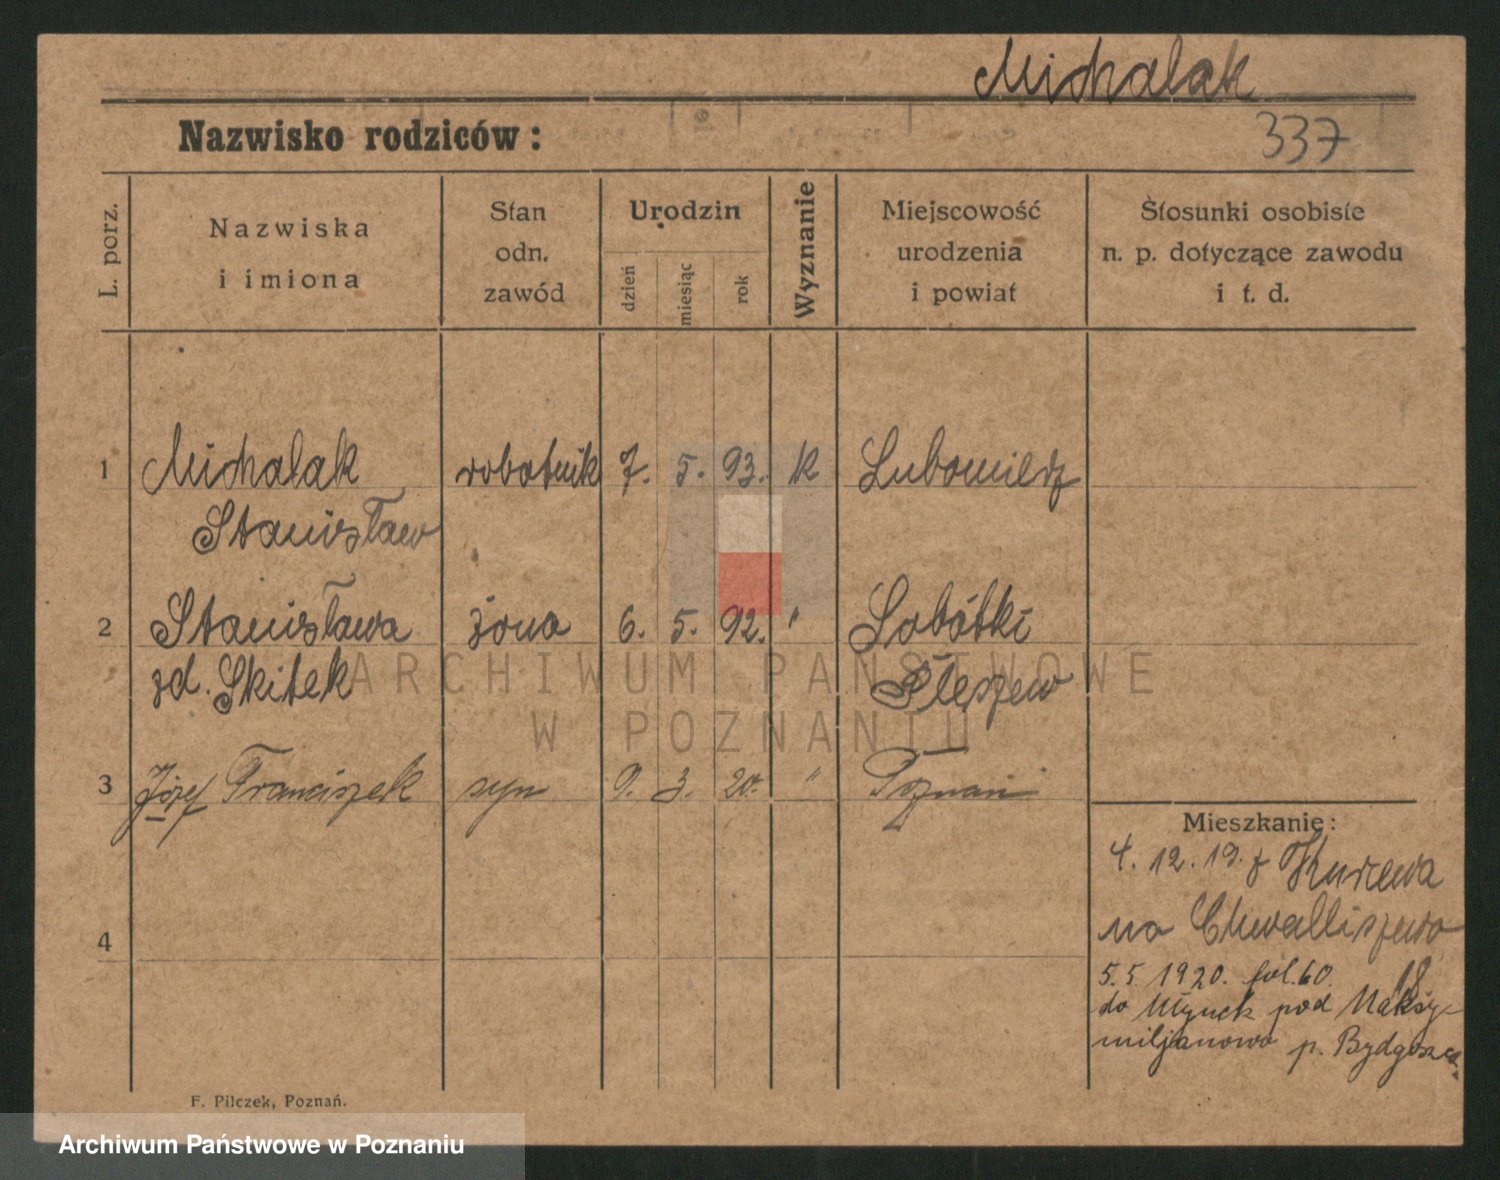 Michalak
Nazwisko rodziców:
337
L. porz.
Nazwiska
i imiona
Stan
odn.
zawód
Urodzin
dzień
miesiąc
rok
Wyznanie
Miejscowość
urodzenia
i powiat
Stosunki osobiste
n. p. dotyczące zawodu
i t. d.
1 Michalak robotnik 7. 5. 93. k Lubomierz
Stanisław
2 Stanisława żona 6. 5. 92. " Sobótki
zd. Skitek Pleszew
3 Józef Franciszek syn 9. 3. 20. " Poznań
Mieszkanie:
4. 12. 19. z Kurcewa
na Chwalliszewo
4
18
5.5.1920. fol. 60.
do Młynek pod Maksy-
miljanowo p. Bydgoszcz.
F. Pilczek, Poznań.
ARCHIWUM PAŃSTWOWE
W POZNANIU
Archiwum Państwowe w Poznaniu